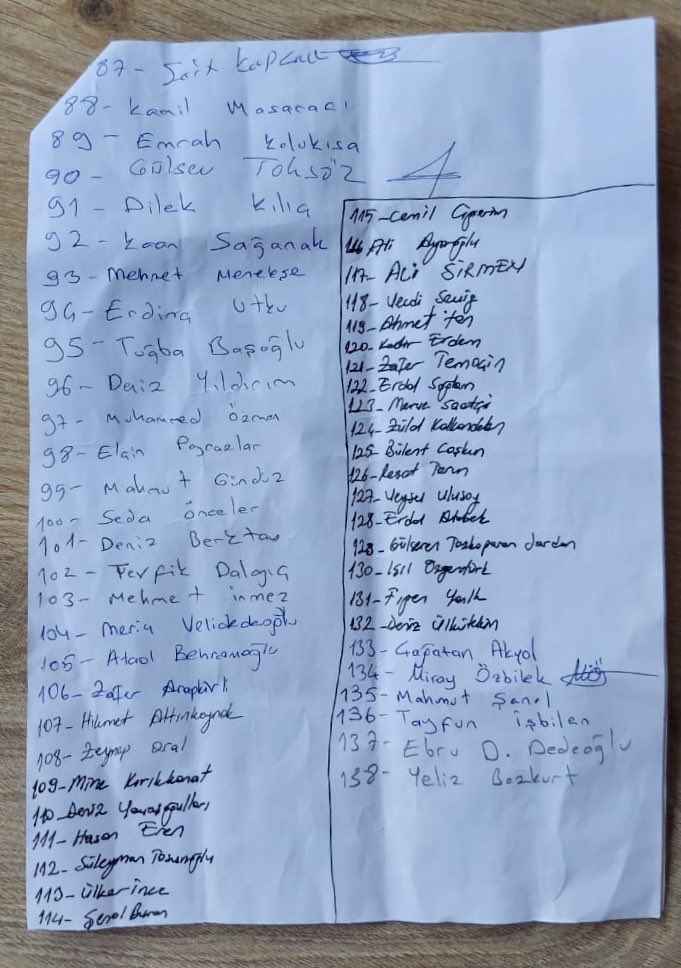 87- Sait Kapkau
88- Kamil Masaracı
89- Emrah Kolukısa
90- Gülsev Toksöz
91- Dilek Kılıç
92- Kaan Sağanak
93- Mehmet Menekşe
94- Erdinç Utku
95- Tuğba Başoğlu
96- Deniz Yıldırım
97- Muhammed Özmen
98- Elçin Poyrazlar
99- Mahmut Gündüz
100- Seda Önceler
101- Deniz Berktay
102- Tevfik Dalgıç
103- Mehmet inmez
104- Meriç Velidedeoğlu
105- Ataol Behramoğlu
106- Zafer Arapkirli
107- Hikmet Altınkaynak
108- Zeynep Oral
109- Mine Kırıkkanat
110- Deniz Yavaşoğulları
111- Hasan Eren
112- Süleyman Tosunoğlu
113- Ülker ince
114- Şenol
115- Cemil Ciğerim
116 Ali Ayaroğlu
117- ALİ SİRMEN
118- Vecdi Seviğ
119- Ahmet Tan
120- Kadir Erdem
121- Zafer Temoçin
122- Erdal Sağlam
123- Merve Saatçi
124- Zülal Kalkandelen
125- Bülent Coşkun
126- Reşat
127- Veysel Ulusoy
128- Erdal Atabek
129- Gülseren Toskaparan Jardan
130- Işıl Özgentürk
131- Figen
132- Deniz Ülkütekin
133- Çağatan Akyol
134- Miray Özbilek
135- Mahmut Şenel
136- Tayfun işbilen
137- Ebru D. Dedeoğlu
138- Yeliz Bozkurt